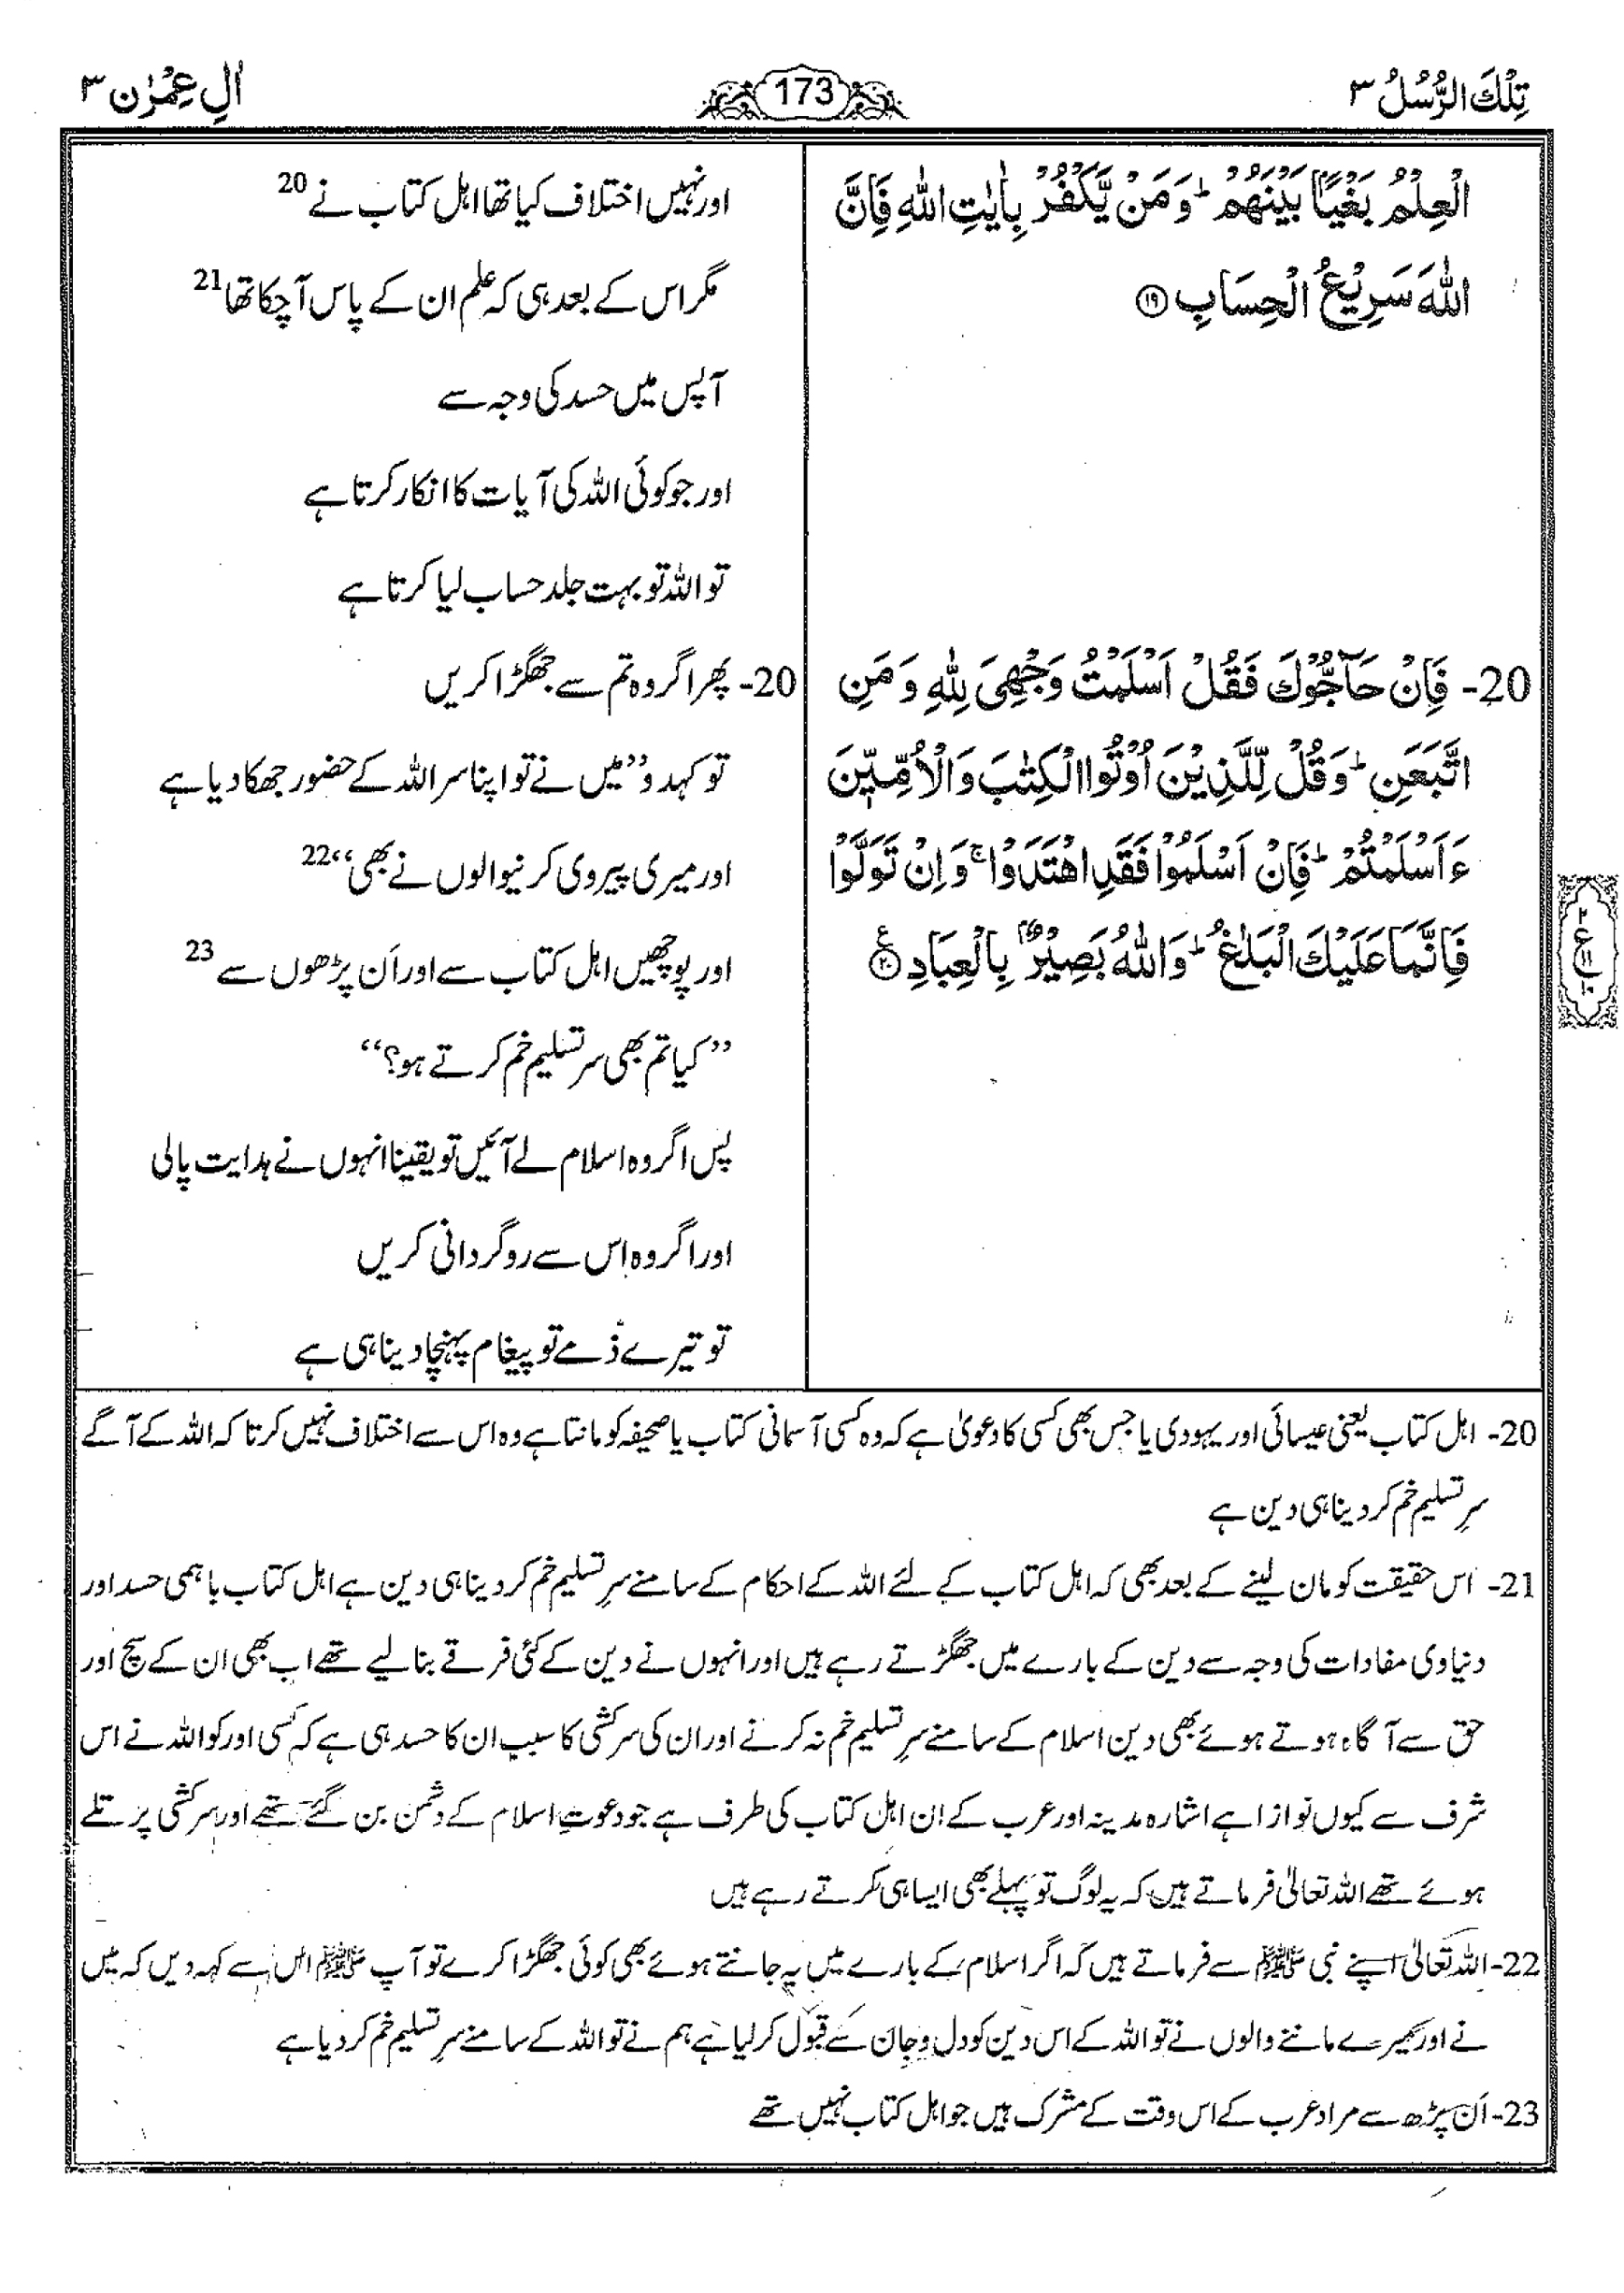 تِلْكَ الرُّسُلُ ٣
173
اٰلِ عِمْرٰن ٣
الْعِلْمُ بَغْيًۢا بَيْنَهُمْ ؕ وَمَنْ يَّكْفُرْ بِاٰيٰتِ اللّٰهِ فَاِنَّ
اللّٰهَ سَرِيْعُ الْحِسَابِ ﴿۱۹﴾
20- فَاِنْ حَآجُّوْكَ فَقُلْ اَسْلَمْتُ وَجْهِيَ لِلّٰهِ وَ مَنِ
اتَّبَعَنِ ؕ وَقُلْ لِّلَّذِيْنَ اُوْتُوا الْكِتٰبَ وَالْاُمِّيّٖنَ
ءَاَسْلَمْتُمْ ؕ فَاِنْ اَسْلَمُوْا فَقَدِ اهْتَدَوْا ۚ وَ اِنْ تَوَلَّوْا
فَاِنَّمَا عَلَيْكَ الْبَلٰغُ ؕ وَاللّٰهُ بَصِيْرٌۢ بِالْعِبَادِ ﴿۲۰﴾ ع
اور نہیں اختلاف کیا تھا اہل کتاب نے 20
مگر اس کے بعد ہی کہ علم ان کے پاس آ چکا تھا 21
آپس میں حسد کی وجہ سے
اور جو کوئی اللہ کی آیات کا انکار کرتا ہے
تو اللہ تو بہت جلد حساب لیا کرتا ہے
20- پھر اگر وہ تم سے جھگڑا کریں
تو کہدو ”میں نے تو اپنا سر اللہ کے حضور جھکا دیا ہے
اور میری پیروی کرنیوالوں نے بھی“ 22
اور پوچھیں اہل کتاب سے اور اَن پڑھوں سے 23
”کیا تم بھی سر تسلیم خم کرتے ہو؟“
پس اگر وہ اسلام لے آئیں تو یقینا انہوں نے ہدایت پالی
اور اگر وہ اس سے روگردانی کریں
تو تیرے ذمے تو پیغام پہنچا دینا ہی ہے
20- اہل کتاب یعنی عیسائی اور یہودی یا جس بھی کسی کا دعویٰ ہے کہ وہ کسی آسمانی کتاب یا صحیفہ کو مانتا ہے وہ اس سے اختلاف نہیں کرتا کہ اللہ کے آگے
سرِ تسلیم خم کر دینا ہی دین ہے
21- اس حقیقت کو مان لینے کے بعد بھی کہ اہل کتاب کے لئے اللہ کے احکام کے سامنے سرِ تسلیم خم کر دینا ہی دین ہے اہل کتاب باہمی حسد اور
دنیاوی مفادات کی وجہ سے دین کے بارے میں جھگڑتے رہے ہیں اور انہوں نے دین کے کئی فرقے بنا لیے تھے اب بھی ان کے سچ اور
حق سے آگاہ ہوتے ہوئے بھی دین اسلام کے سامنے سرِ تسلیم خم نہ کرنے اور ان کی سرکشی کا سبب ان کا حسد ہی ہے کہ کسی اور کو اللہ نے اس
شرف سے کیوں نوازا ہے اشارہ مدینہ اور عرب کے ان اہل کتاب کی طرف ہے جو دعوتِ اسلام کے دشمن بن گئے تھے اور سرکشی پر تلے
ہوئے تھے اللہ تعالیٰ فرماتے ہیں کہ یہ لوگ تو پہلے بھی ایسا ہی کرتے رہے ہیں
22- اللہ تعالیٰ اپنے نبی ﷺ سے فرماتے ہیں کہ اگر اسلام کے بارے میں یہ جانتے ہوئے بھی کوئی جھگڑا کرے تو آپ ﷺ اس سے کہہ دیں کہ میں
نے اور میرے ماننے والوں نے تو اللہ کے اس دین کو دل و جان سے قبول کر لیا ہے ہم نے تو اللہ کے سامنے سرِ تسلیم خم کر دیا ہے
23- اَن پڑھ سے مراد عرب کے اس وقت کے مشرک ہیں جو اہل کتاب نہیں تھے